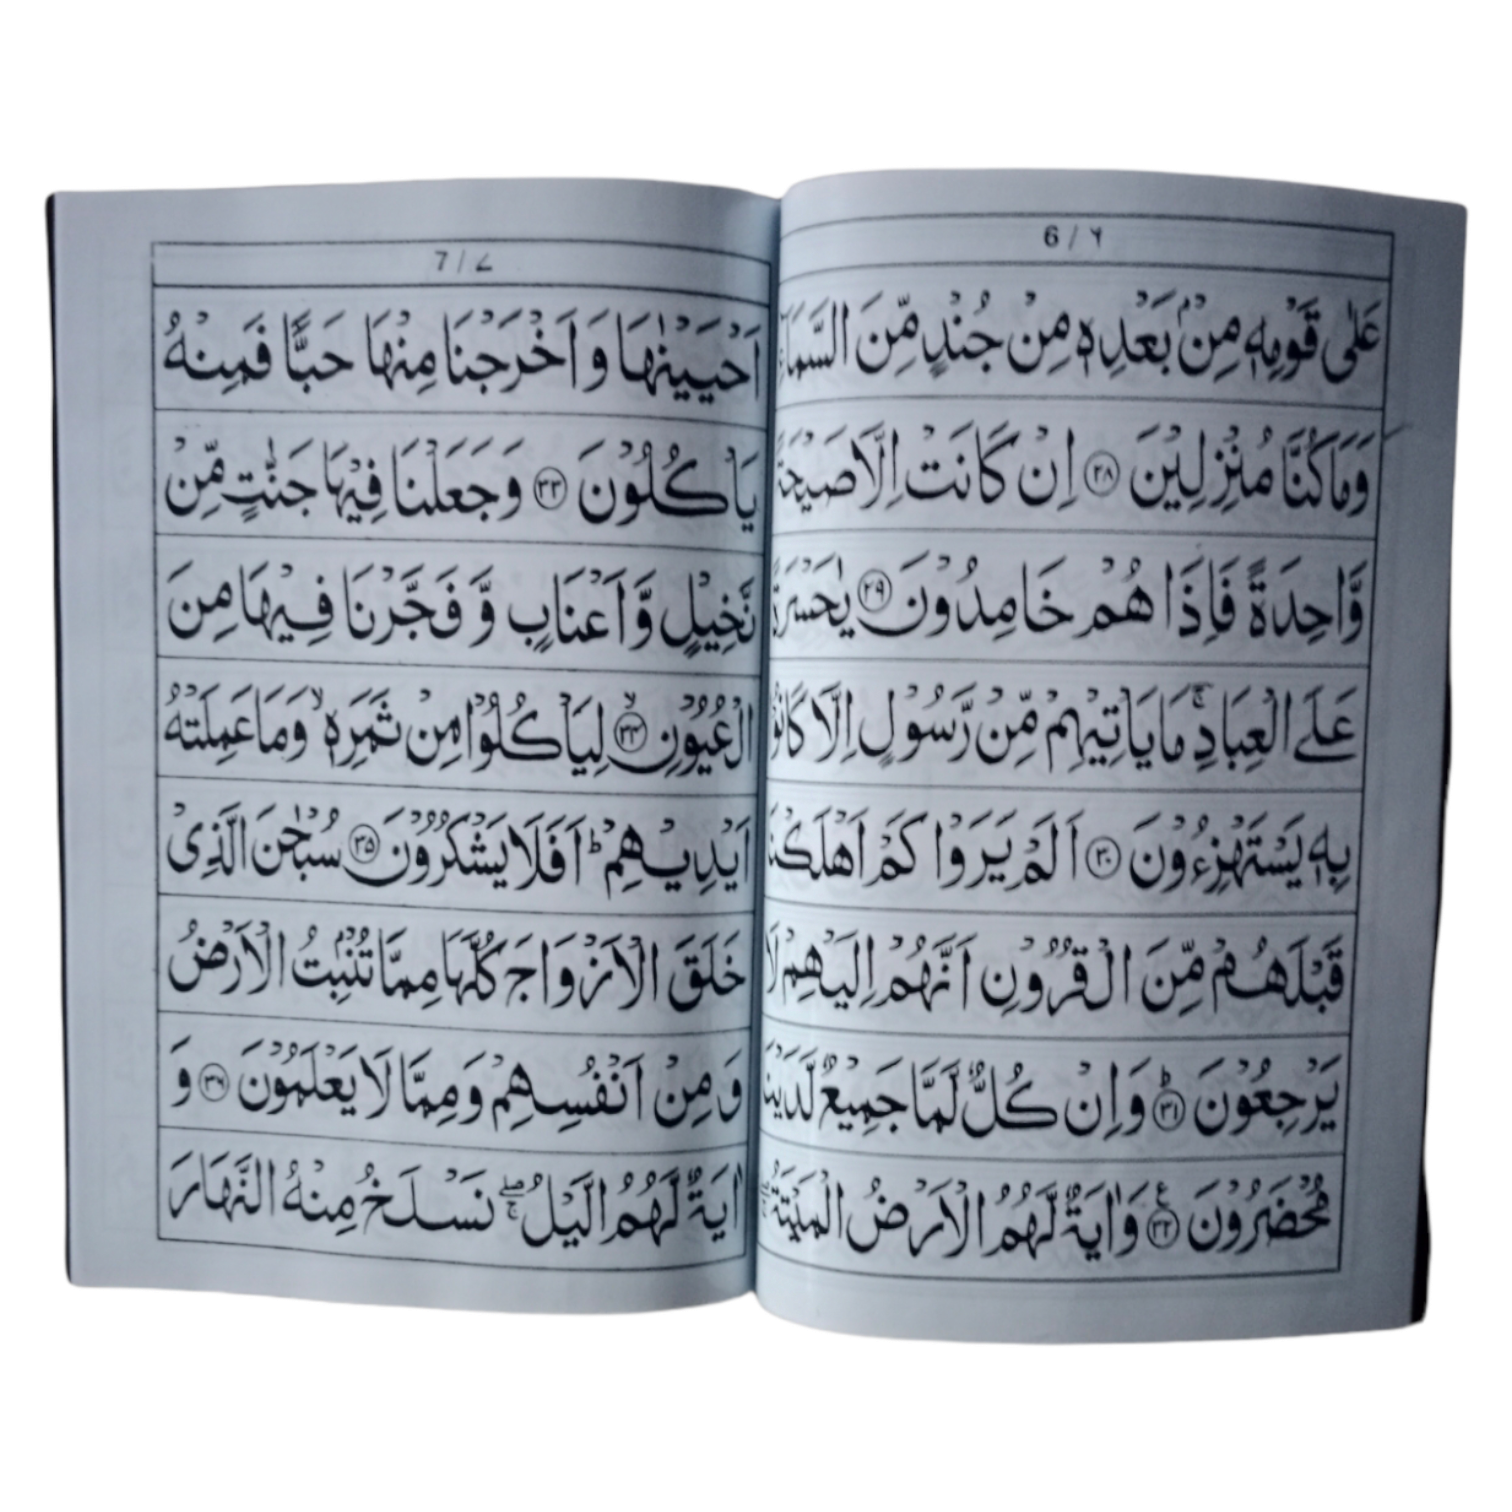 6 / ۶
عَلٰى قَوْمِهٖ مِنْۢ بَعْدِهٖ مِنْ جُنْدٍ مِّنَ السَّمَآءِ
وَمَا كُنَّا مُنْزِلِيْنَ ۝۲۸ اِنْ كَانَتْ اِلَّا صَيْحَةً
وَّاحِدَةً فَاِذَا هُمْ خَامِدُوْنَ ۝۲۹ يٰحَسْرَةً
عَلَى الْعِبَادِ ۚ مَا يَاْتِيْهِمْ مِّنْ رَّسُوْلٍ اِلَّا كَانُوْا
بِهٖ يَسْتَهْزِءُوْنَ ۝۳۰ اَلَمْ يَرَوْا كَمْ اَهْلَكْنَا
قَبْلَهُمْ مِّنَ الْقُرُوْنِ اَنَّهُمْ اِلَيْهِمْ لَا
يَرْجِعُوْنَ ؕ ۝۳۱ وَاِنْ كُلٌّ لَّمَّا جَمِيْعٌ لَّدَيْنَا
مُحْضَرُوْنَ ۝۳۲ وَاٰيَةٌ لَّهُمُ الْاَرْضُ الْمَيْتَةُ
7 / ۷
اَحْيَيْنٰهَا وَ اَخْرَجْنَا مِنْهَا حَبًّا فَمِنْهُ
يَاْكُلُوْنَ ۝۳۳ وَجَعَلْنَا فِيْهَا جَنّٰتٍ مِّنْ
نَّخِيْلٍ وَّ اَعْنَابٍ وَّ فَجَّرْنَا فِيْهَا مِنَ
الْعُيُوْنِ ۙ ۝۳۴ لِيَاْكُلُوْا مِنْ ثَمَرِهٖ ۙ وَمَا عَمِلَتْهُ
اَيْدِيْهِمْ ؕ اَفَلَا يَشْكُرُوْنَ ۝۳۵ سُبْحٰنَ الَّذِيْ
خَلَقَ الْاَزْوَاجَ كُلَّهَا مِمَّا تُنْۢبِتُ الْاَرْضُ
وَ مِنْ اَنْفُسِهِمْ وَ مِمَّا لَا يَعْلَمُوْنَ ۝۳۶ وَ
اٰيَةٌ لَّهُمُ الَّيْلُ ۖۚ نَسْلَخُ مِنْهُ النَّهَارَ